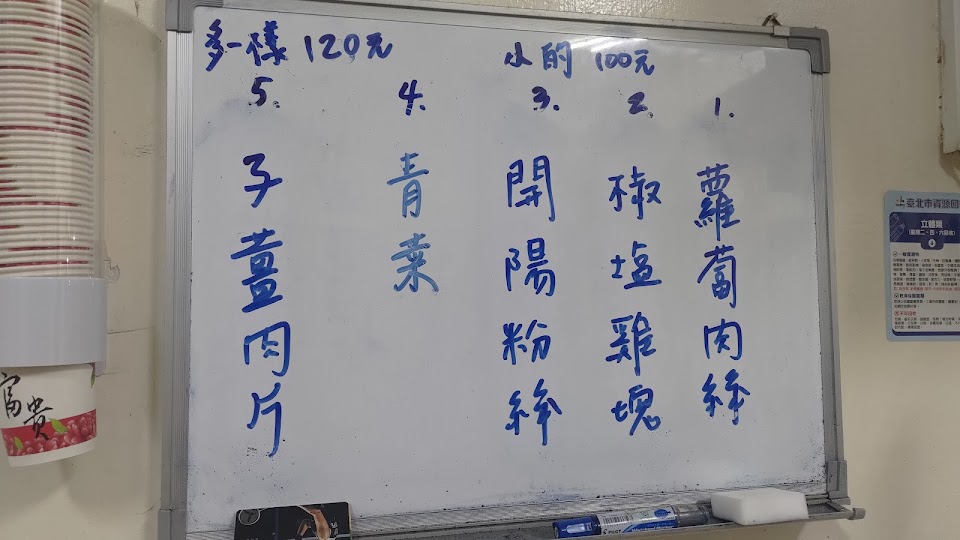 多一樣 120元
小的 100元
1.
蘿蔔肉絲
2.
椒塩雞塊
3.
開陽粉絲
4.
青菜
5.
子薑肉片
富貴
臺北市資源回
立體類